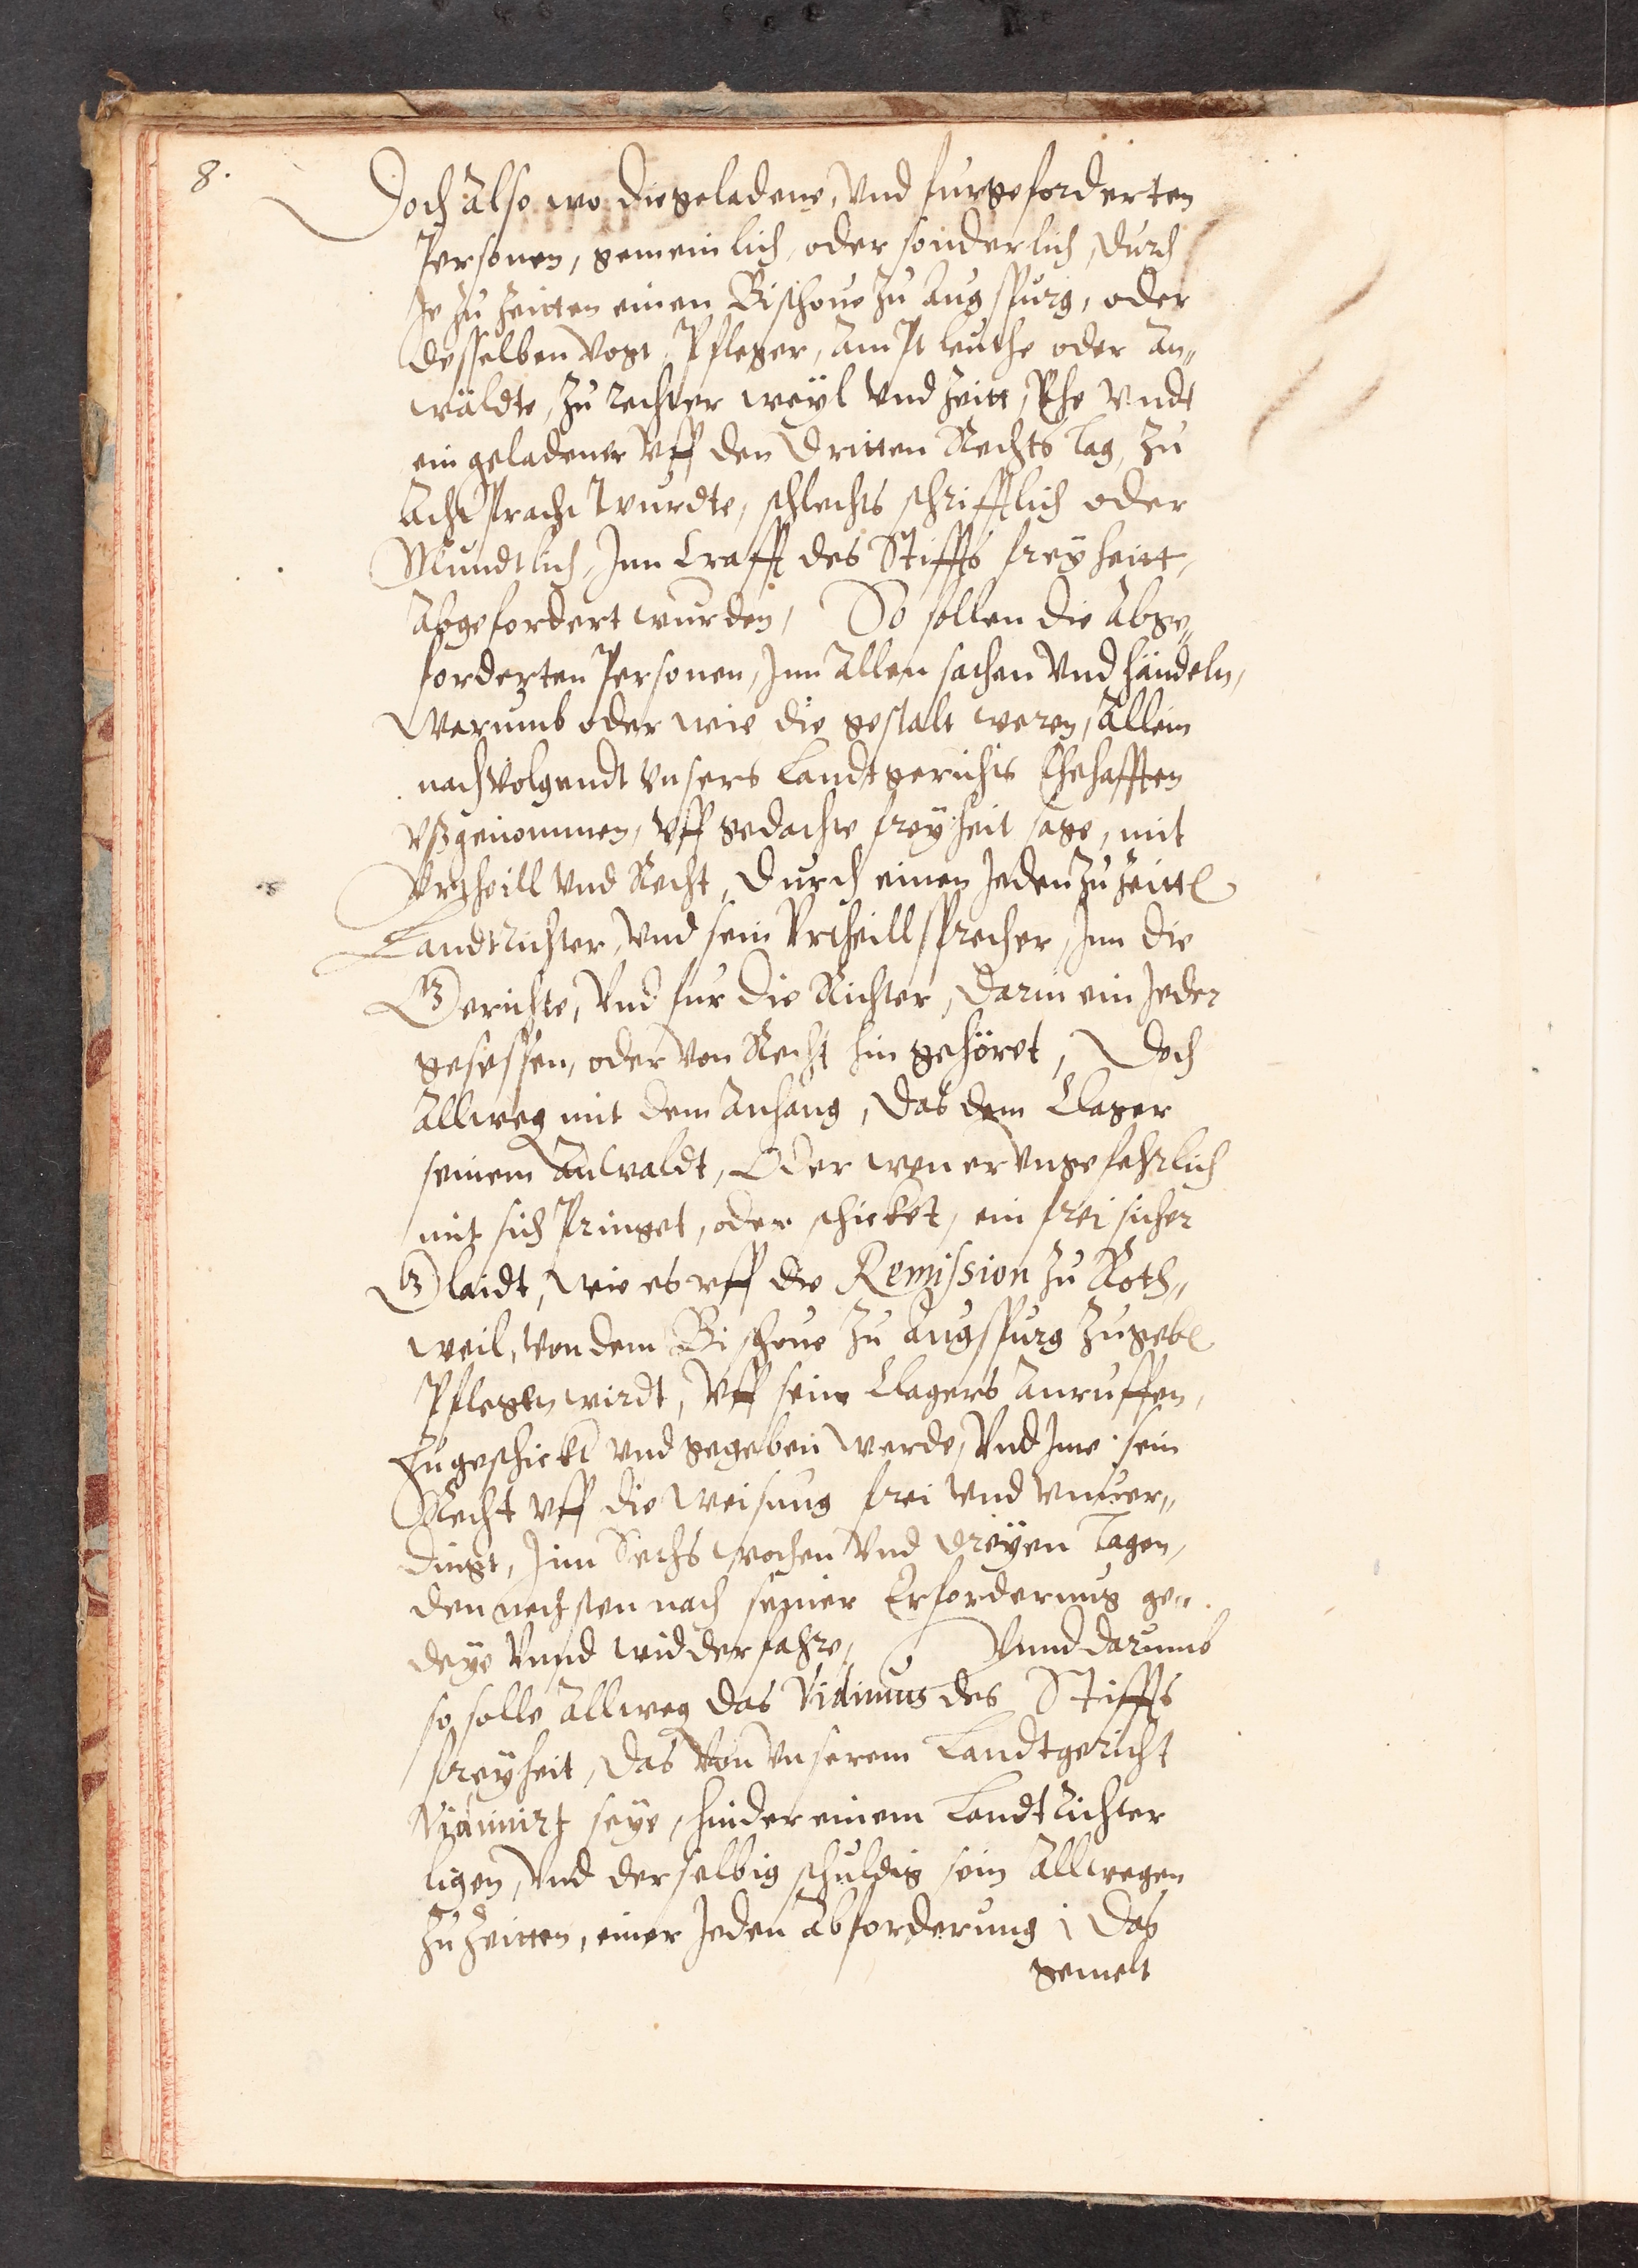 8.
Doch also wo die geladene, Vnd furgeforderten
Personen, gemeinlich, oder sonderlich, Durch
Je zu Zeitten einen Bischoue zu Augspurg, oder
desselben Vogt, Pfleger, Amptleuthe oder An„
wäldte, zu rechter weyl Vnd Zeitt, Ehe Vndt
ein geladener Vff den Dritten Rechts tag, zu
Acht Pracht wurdte, schlechts schrifftlich oder
Mundtlich, Inn Crafft des Stiffts freyheitt,
Abgefordert wurden, So sollen die Abge„
forderten Personen, Inn Allen sachen Vnd händeln,
Warumb oder wie die gestalt weren, Allein
nachVolgendt Vnsers Landtgerichts Ehehafften
Vßgenommen, Vff gedachte freyheit sage, mit
Vrtheill Vnd Recht, Durch einen Jeden zu Zeitt
Landtrichter, Vnd sein Vrtheillsprecher, Inn die
Gerichte, Vnd fur die Richter, Darin ein Jeder
gesessen, oder Von Recht hin gehöret, Doch
Allweg mit dem Anhang, Das dem Clager
seinem Anwaldt, Oder wen er Vngefehrlich
mit sich Pringet, oder schicket, ein frei sicher
Glaidt, Wie es vff die Remission zu Roth„
weil, Von dem Bischoue zu Augspurg zugeb
Pflegen wirdt, Vff sein Clagers Anruffen,
Zugeschickt vnd gegeben werde, Vnd Ime sein
Recht vff die Weisung frei Vnd Vnuer„
dingt, Inn Sechs wochen Vnd dreyen tagen,
den nechsten nach seiner Erfordernus ge„
deye Vnnd widderfahre, Vnnd darumb
so solle Allweg das Vidimus des Stiffts
freyheit, Das Von Vnserem Landtgericht
Vidimirt seye, hinder einem Landtrichter
ligen, Vnd derselbig schuldig sein Allwegen
zu Zeitten, einer Jeden Abforderung, Das
gemelt